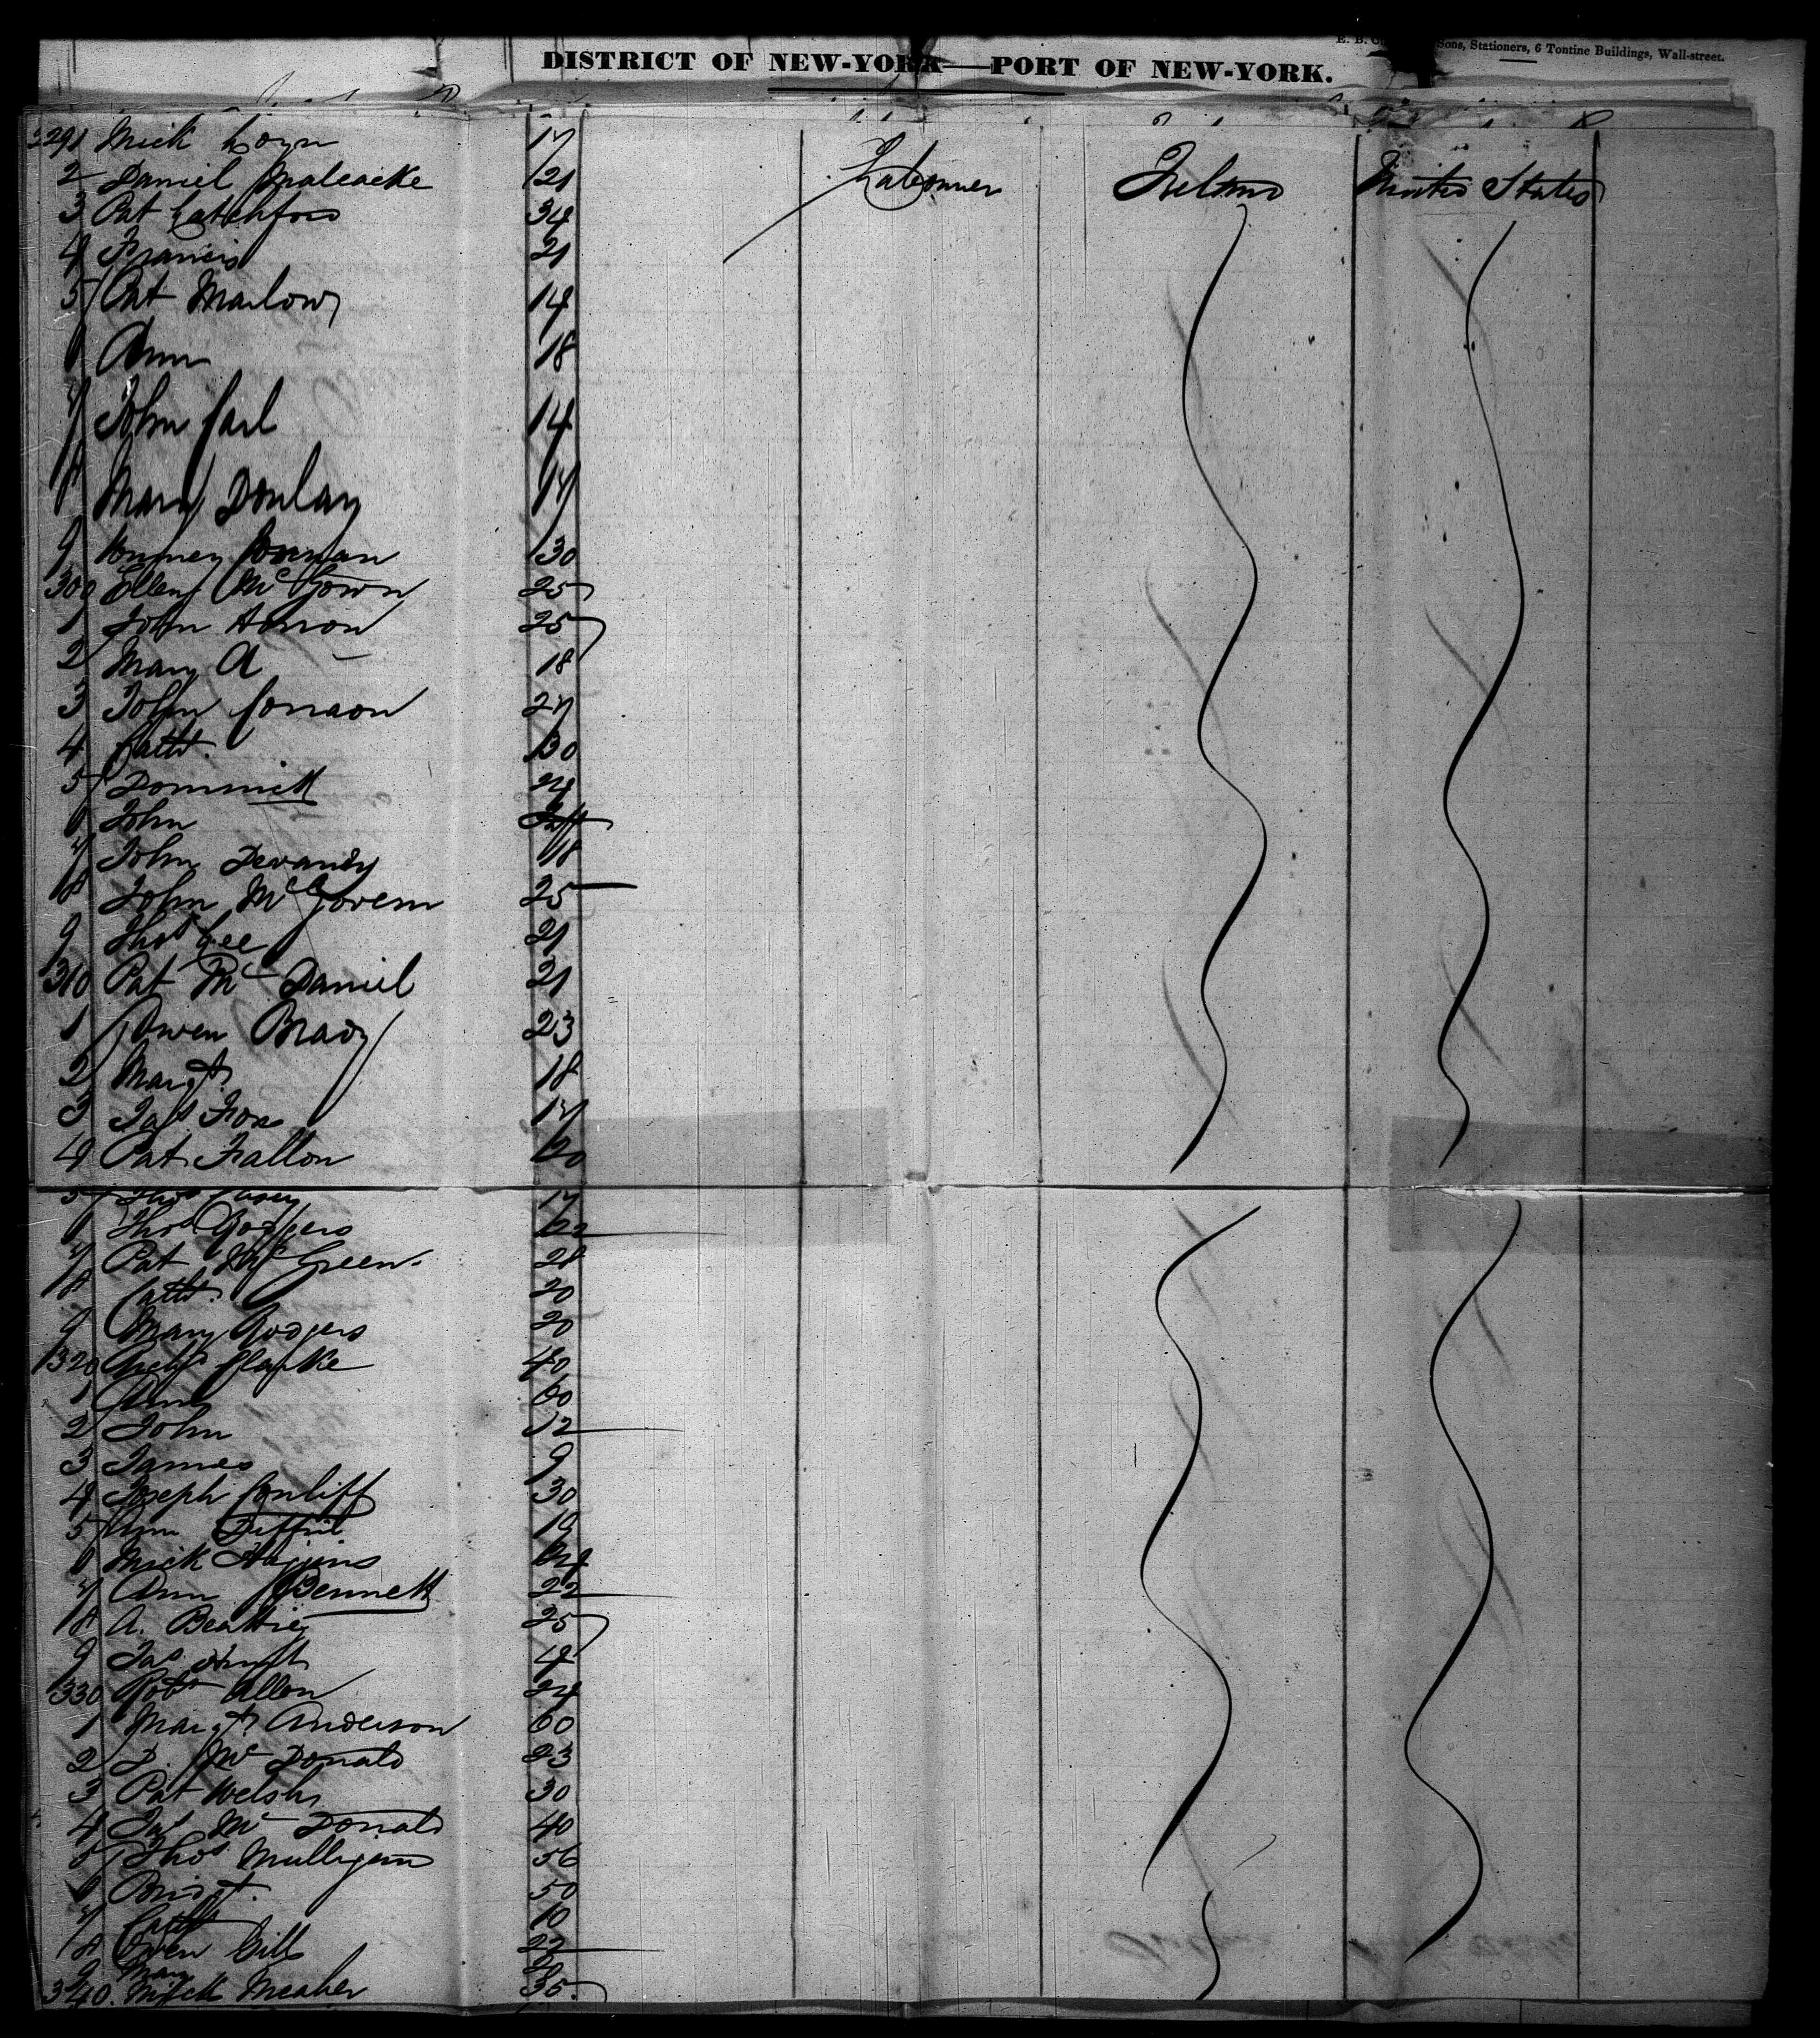 Sons, Stationers, 6 Tontine Buildings, Wall-street.
DISTRICT OF NEW-YORK—PORT OF NEW-YORK.
291 Mick 17
2 Daniel 21 Labourer Ireland United States
3 Pat Latchford 34
4 Francis 21
5 Pat Marlow 14
6 Ann 18
7 John Carl 14
8 Mary Donlay 17
9 30
300 Ellen McGown 25
1 John 25
2 Mary A 18
3 John 27
4 Cath. 30
5 Dominick 24
6 John
7 John Devaney 18
8 John McGovern 25
9 Thos Gee 21
310 Pat Mc Daniel 21
1 Owen Brady 23
2 Margt. 18
3 Jas Fox 17
4 Pat Fallon 60
5 Thos Casey 17
6 Thos Rodgers 22
7 Pat McGreen 28
8 Cath. 20
9 Mary Rodgers 20
320 Clarke 40
1 Ann 60
2 John 12
3 James 9
4 Joseph Conliff 30
5 Ann 19
6 Mick Hagins
7 Ann Bennett 22
8 A. Beattie 25
9 Jas
330 Robt Allen 24
1 Margt. Anderson 60
2 D. Mc Donald 23
3 Pat Welsh 30
4 Jas Mc Donald 40
5 Thos Mulligan 56
6 Bridt. 50
7 Cath 10
8 Owen Gill 22
9 Mary
340. Mick Meaher 35